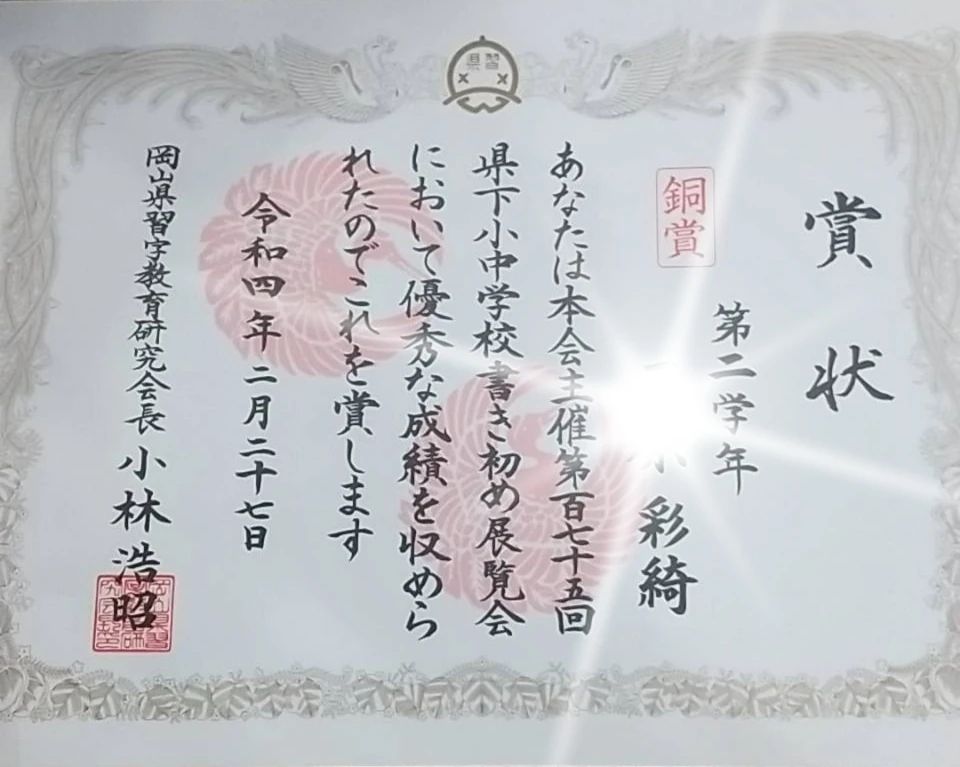 県習
賞状
第二学年
銅賞
彩綺
あなたは本会主催第百七十五回
県下小中学校書き初め展覧会
において優秀な成績を収めら
れたのでこれを賞します
令和四年二月二十七日
岡山県習字教育研究会長 小林浩昭